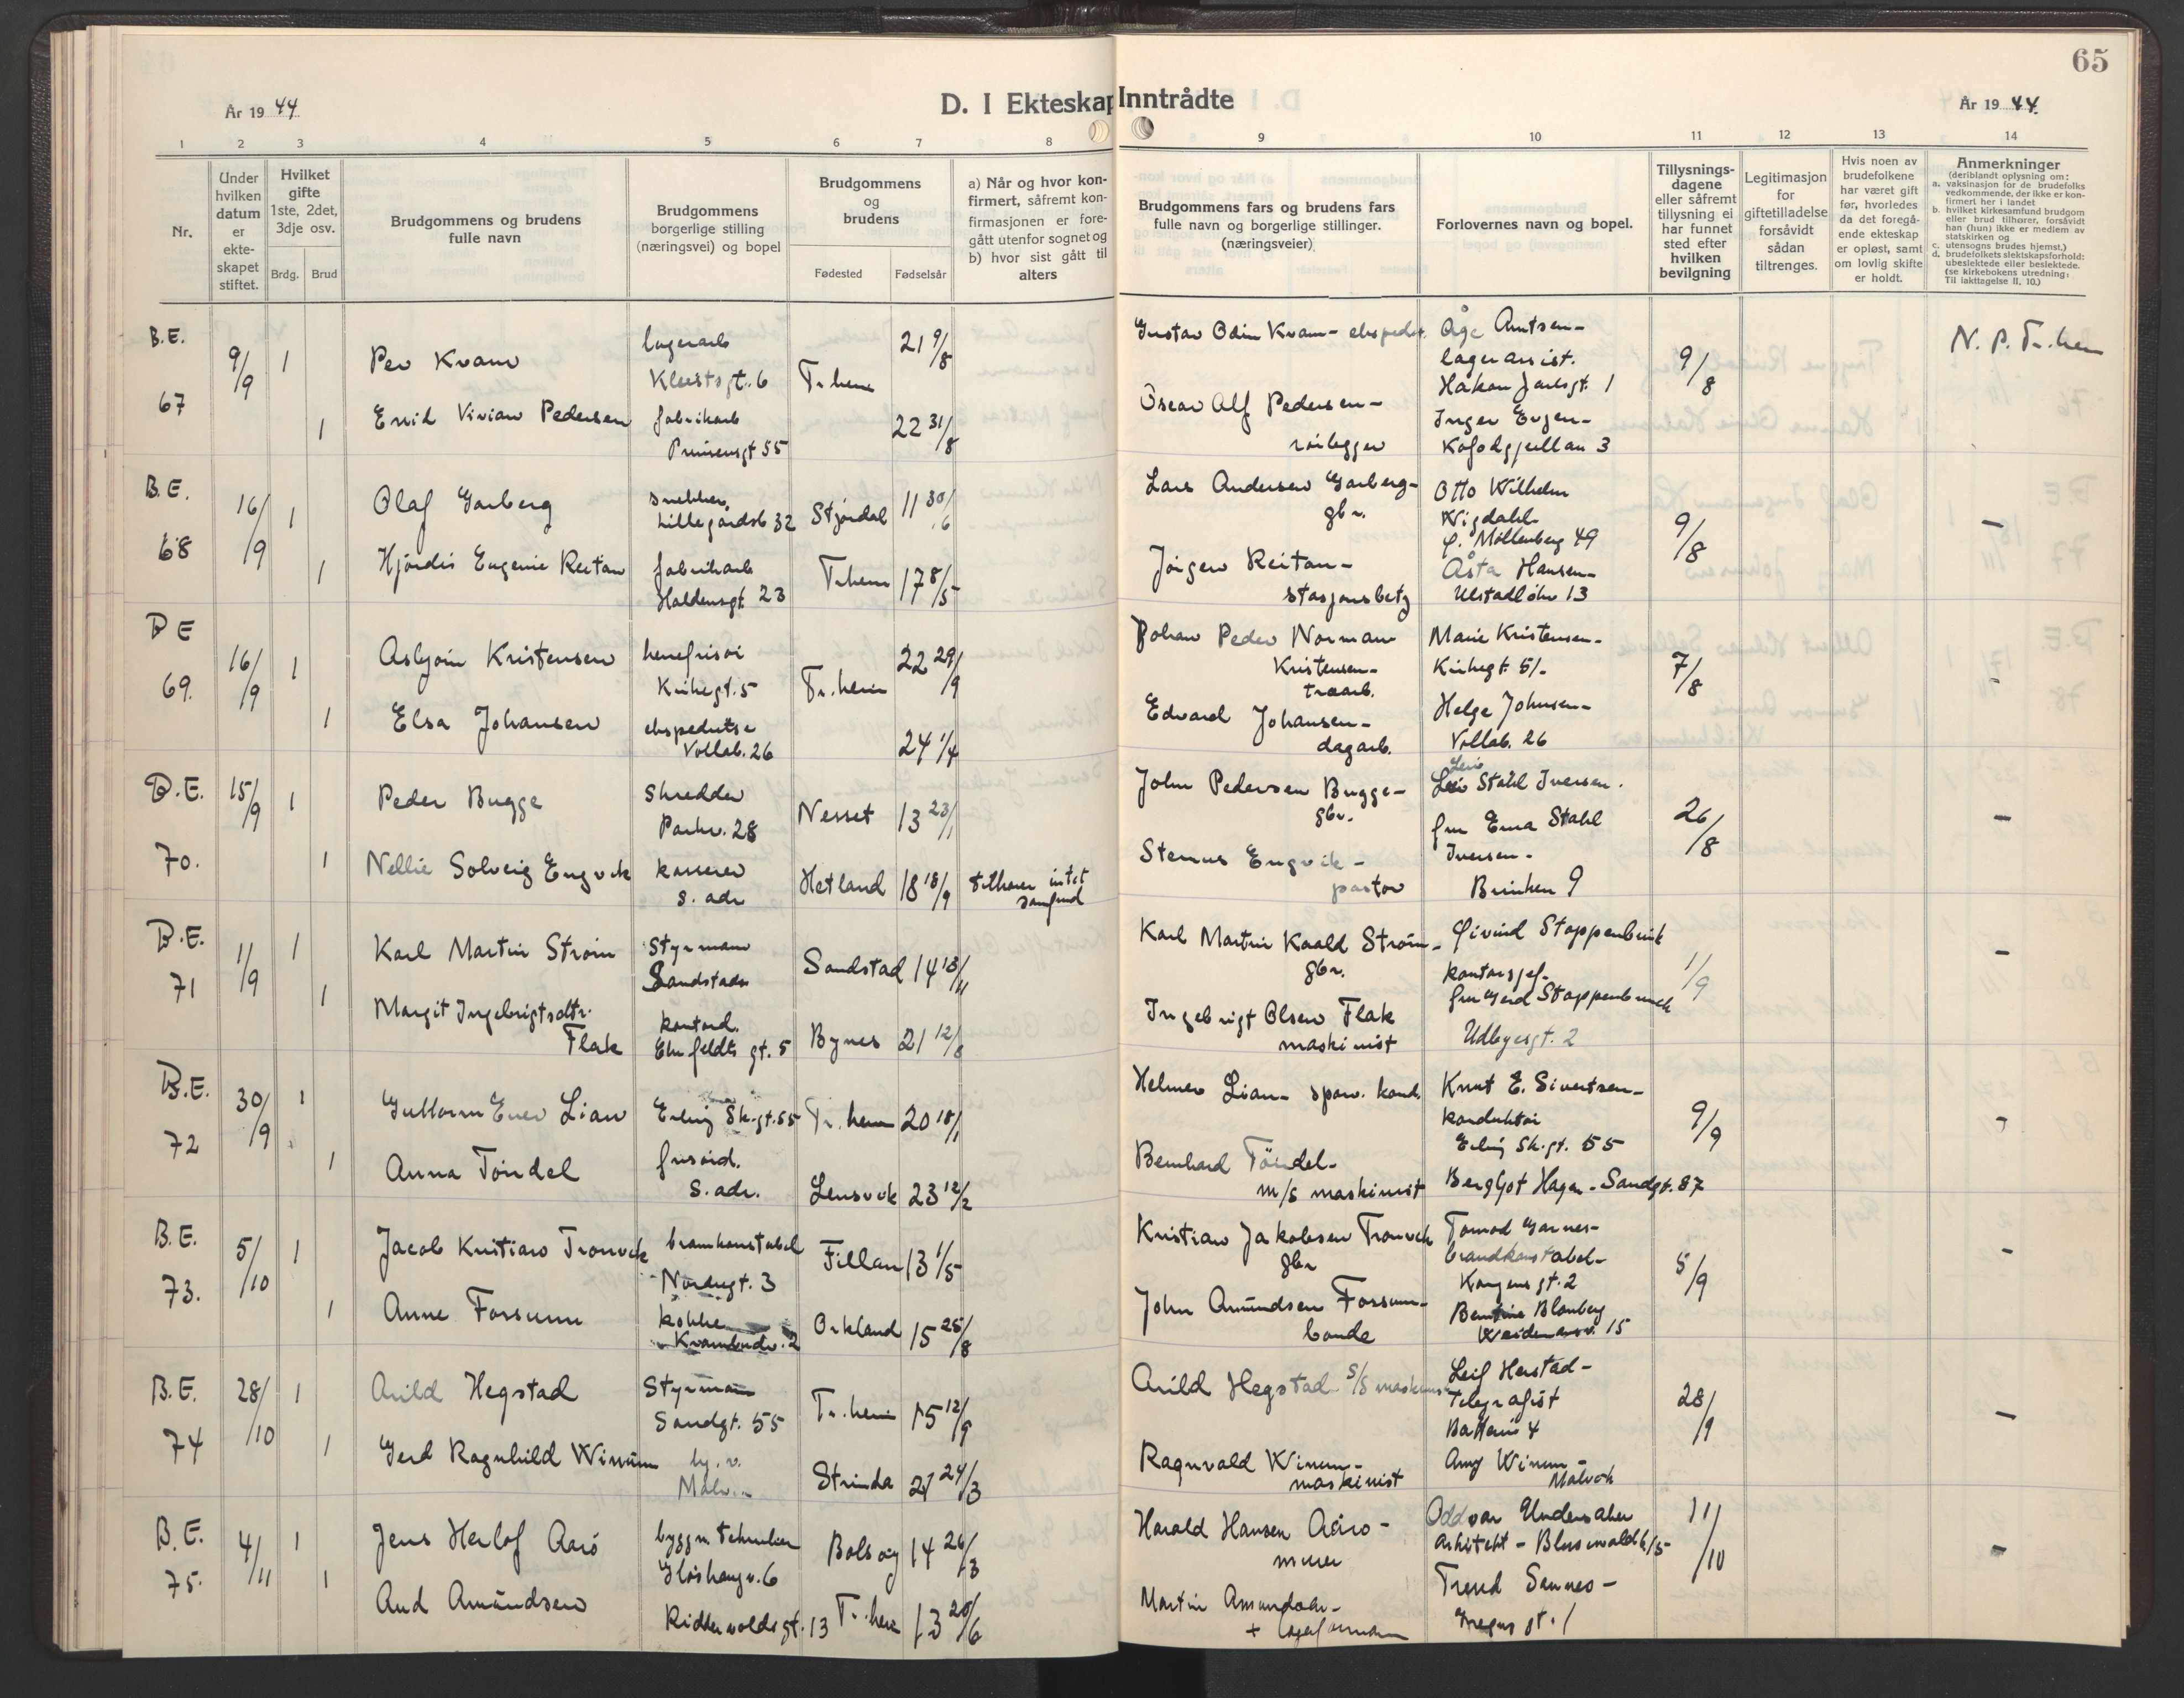 65
År 1944
D. I Ekteskap Inntrådte
År 1944.
1 2 3 4 5 6 7 8 9 10 11 12 13 14
Nr.
Under hvilken datum er ekteskapet stiftet.
Hvilket gifte 1ste, 2det, 3dje osv.
Brdg. Brud
Brudgommens og brudens fulle navn
Brudgommens borgerlige stilling (næringsvei) og bopel
Brudgommens og brudens
Fødested Fødselsår
a) Når og hvor konfirmert, såfremt konfirmasjonen er foregått utenfor sognet og b) hvor sist gått til alters
Brudgommens fars og brudens fars fulle navn og borgerlige stillinger. (næringsveier)
Forlovernes navn og bopel.
Tillysningsdagene eller såfremt tillysning ei har funnet sted efter hvilken bevilgning
Legitimasjon for giftetilladelse forsåvidt sådan tiltrenges.
Hvis noen av brudefolkene har været gift før, hvorledes da det foregående ekteskap er opløst, samt om lovlig skifte er holdt.
Anmerkninger
(deriblandt oplysning om:
a. vaksinasjon for de brudefolks vedkommende, der ikke er konfirmert her i landet
b. hvilket kirkesamfund brudgom eller brud tilhører, forsåvidt han (hun) ikke er medlem av statskirken og
c. utensogns brudes hjemst.)
d. brudefolkets slektskapsforhold: ubeslektede eller beslektede. (se kirkebokens utredning: Til iakttagelse II, 10.)
B.E. 67
9/9 1
Per Kvam
lagerarb
Kleistsgt. 6
Tr.heim
21 9/8
Gustav Odin Kvam - ekspedit.
Åge Arntsen -
lagerassist.
Håkon Jarlsgt. 1
9/8
N. P. Tr.heim
1
Enid Vivian Pedersen
fabrikarb
Prinsensgt 55
22 31/8
Oscar Alf Pedersen -
rørlegger
Inger Evjen -
Kofodgjellan 3
B.E. 68
16/9 1
Olaf Garberg
snekker
Lillegårdsb 32
Stjørdal
11 30/6
Lars Andersen Garberg -
gbr.
Otto Wilhelm
Wigdahl
Ø. Møllenberg 49
9/8
-
1
Hjørdis Eugenie Reitan
fabrikarb
Haldensgt 23
Tr.heim
17 8/5
Jørgen Reitan -
stasjonsbetj
Åsta Hansen -
Ulstadløkv 13
B E 69.
16/9 1
Asbjørn Kristensen
herrefrisør
Kirkegt. 5
Tr.heim
22 29/9
Johan Peder Norman
Kristensen -
trearb.
Marie Kristensen -
Kirkegt. 51 -
7/8
-
1
Elsa Johansen
ekspeditse
Vollab. 26
24 1/4
Edvard Johansen -
dagarb.
Helge Johnsen -
Vollab. 26
B.E. 70.
15/9 1
Peder Bugge
skredder
Parkv. 28
Nesset
13 23/1
John Pedersen Bugge -
gbr.
Leiv
Leiv Stahl Iversen.
fru Erna Stahl
Iversen -
Brinken 9
26/8
-
1
Nellie Solveig Engvik
kasserer
s. adr
Hetland
18 18/9
tilhører intet
samfund
Stenus Engvik -
pastor
B.E. 71
1/9 1
Karl Martin Strøm
Styrmann
Sandstad
Sandstad
14 13/11
Karl Martin Kaald Strøm -
gbr.
Øivind Stoppenbrink
kontorsjef -
fru Gerd Stoppenbrink
Udbyesgt. 2
1/9
-
1
Margit Ingebrigtsdtr.
Flak
kontord.
Ehrfeldts gt. 5
Bynes
21 12/8
Ingebrigt Olsen Flak
maskinist
B.E. 72
30/9 1
Guttorm Ener Lian
Erling Sk.gt. 55
Tr.heim
20 18/1
Helmer Lian - sporv. kond.
Knut E. Sivertsen -
konduktør
Erling Sk.gt. 55
9/9
-
1
Anna Tøndel
s. adr.
Lensvik
23 12/2
Bernhard Tøndel -
m/s maskinist
Bergljot Hagen - Sandgt. 87
B.E. 73.
5/10 1
Jacob Kristian Tronvik
brannkonstabel
Nordregt. 3
Fillan
13 1/5
Kristian Jakobsen Tronvik
gbr
Tormod Garnes -
brandkonstabel -
Kongens gt. 2
5/9
-
1
Anne Forsum
kokke
Krambudv. 2
Orkland
15 25/8
John Amundsen Forsum -
bonde
Bentine Blomberg
Weidemannsv. 15
B.E. 74
28/10 1
Arild Hegstad
Styrmann
Sandgt. 55
Tr.heim
15 12/9
Arild Hegstad S/S maskinist
Leif Herstad -
Telegrafist
Batteriv 4
28/9
-
1
Gerd Ragnhild Winum
hj. v.
Malv..
Strinda
21 24/3
Ragnvald Winum -
maskinist
Amy Winum -
Malvik
B.E. 75.
4/11 1
Jens Herlof Aarø
byggn. tekniker
Gløshaugv. 6
Bolsøy
14 26/3
Harald Hansen Aarø -
murer
Oddvar Undersaker
Arkitekt -
11/10
-
1
Aud Amundsen
Riddervoldsgt. 13
Tr.heim
13 20/6
Martin Amundsen -
+ lagerformann
Trend Sannes -
gt. 1